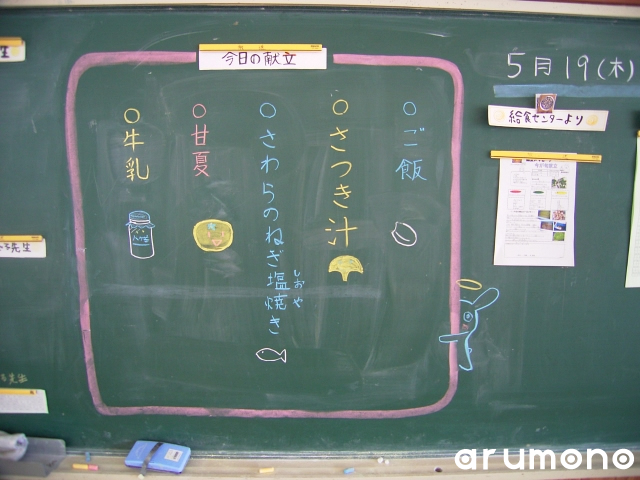 今日の献立
5月19(木)
給食センターより
○ご飯
○さつき汁
○さわらのねぎ塩焼き
しお や
○甘夏
○牛乳
生
先生
arumono